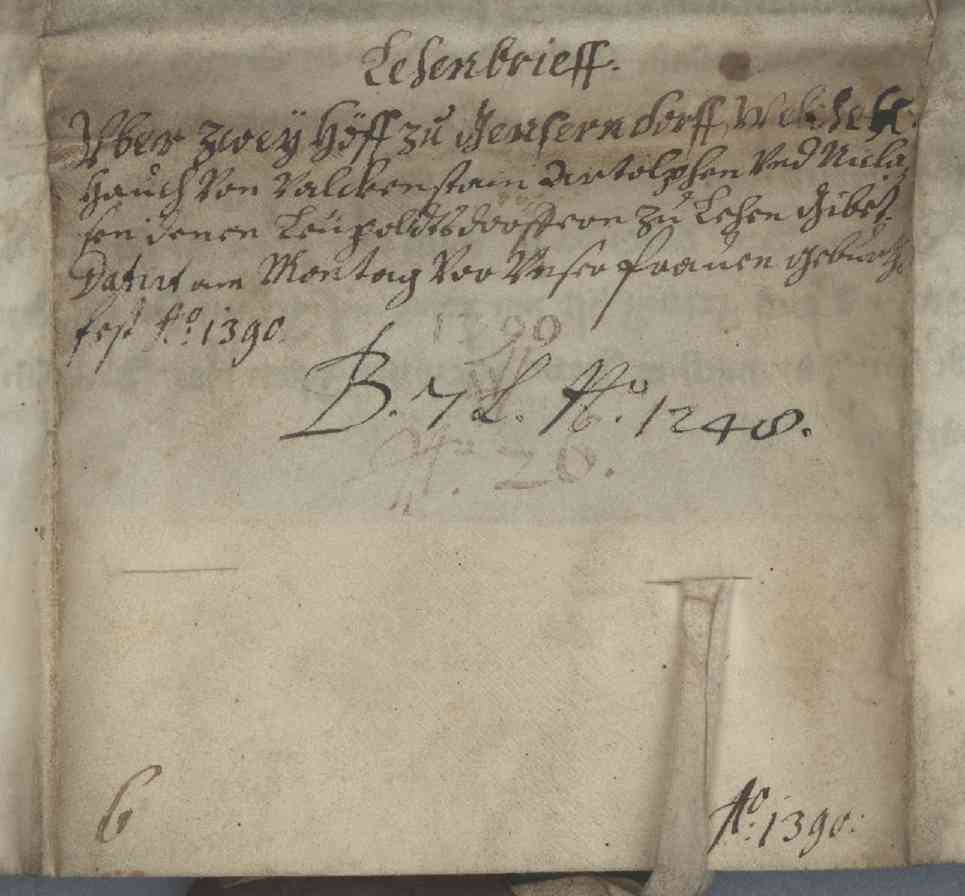 Lehenbrieff.
Vber zwey Höff zu Genserndorff, Welche H:
Hauch Von Valckenstain Artolphen Vnd Nicla
sen denen Leupoldtsdorffern zu Lehen gibet.
Datum am Montag Vor Vnser frauen geburths
fest Ao: 1390.
1390
B. 7 L. No. 1248.
No. 26.
6
Ao: 1390.